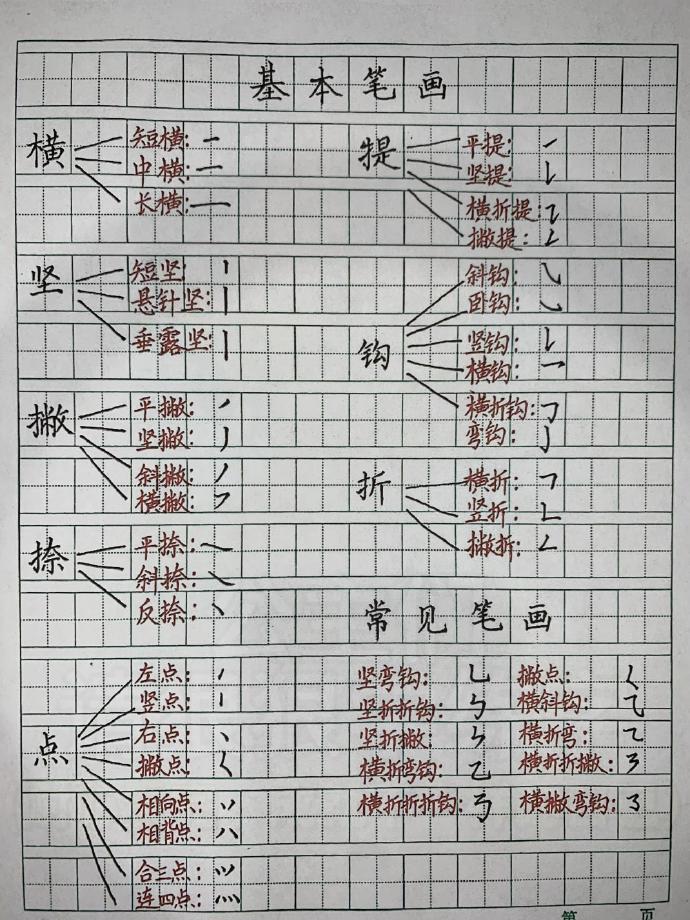 基本笔画
横
短横:
中横:
长横:
坚
短坚:
悬针坚:
垂露坚:
撇
平撇:
坚撇:
斜撇:
横撇:
捺
平捺:
斜捺:
反捺:
点
左点:
竖点:
右点:
撇点:
相向点:
相背点:
合三点:
连四点:
提
平提:
坚提:
横折提:
撇提:
钩
斜钩:
卧钩:
竖钩:
横钩:
横折钩:
弯钩:
折
横折:
竖折:
撇折:
常见笔画
坚弯钩: 撇点:
坚折折钩: 横斜钩:
坚折撇: 横折弯:
横折弯钩: 横折折撇:
横折折折钩: 横撇弯钩:
第 页